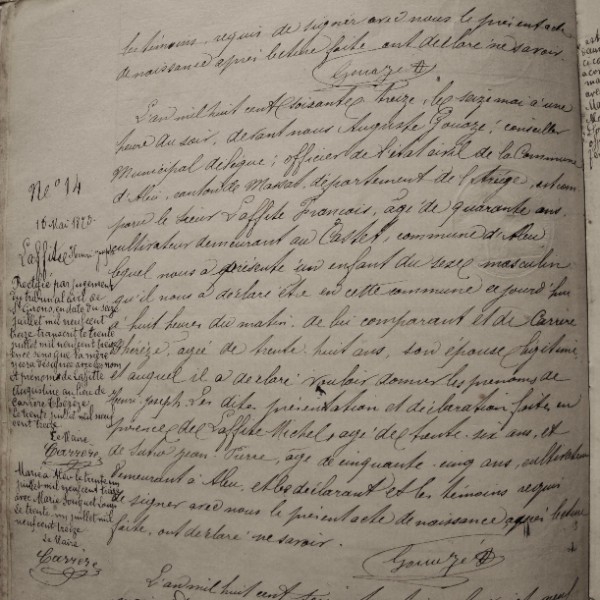 les témoins, requis de signer avec nous le présent acte
de naissance après lecture faite ont déclaré ne savoir.
Gouazé A
L'an mil huit cent soixante treize, le seize mai à une
heure du soir, devant nous, Auguste Gouazé, conseiller
Municipal délégué, officier de l'état civil de la Commune
d'Aleu, canton de Massat, département de l'Ariège, est com
paru le Sieur Laffite François, âgé de quarante ans,
cultivateur demeurant au Castet, commune d'Aleu
lequel nous a présenté un enfant du sexe masculin
qu'il nous a déclaré être né en cette commune ce jourd'hui
à huit heures du matin, de lui comparant et de Carrère
Thérèze, âgée de trente huit ans, son épouse légitime
et auquel il a déclaré vouloir donner les prénoms de
Henri Joseph. Les dites présentation et déclaration faites en
présence de Laffite Michel, âgé de trente six ans, et
de Jean Pierre, âgé de cinquante cinq ans, cultivateurs
demeurant à Aleu, et le déclarant et les témoins requis
de signer avec nous le présent acte de naissance après lecture
faite, ont déclaré ne savoir.
Gouazé A
L'an mil huit cent
N° 14
16 Mai 1873
Laffite Henri Joseph
Rectifié par jugement
du tribunal civil de
St Girons, en date du seize
juillet mil neuf cent
treize transcrit le trente
juillet mil neuf cent treize
en ce sens que la mère
y sera désignée sous les nom
et prénoms de Laffite
Augustine au lieu de
Carrère Thérèze
Le trente juillet mil neuf
cent treize
Le Maire
Carrere
Marié à Aleu le trente un
juillet mil neuf cent treize
avec Marie Louise
Le trente un juillet mil
neuf cent treize
Le Maire,
Carrere